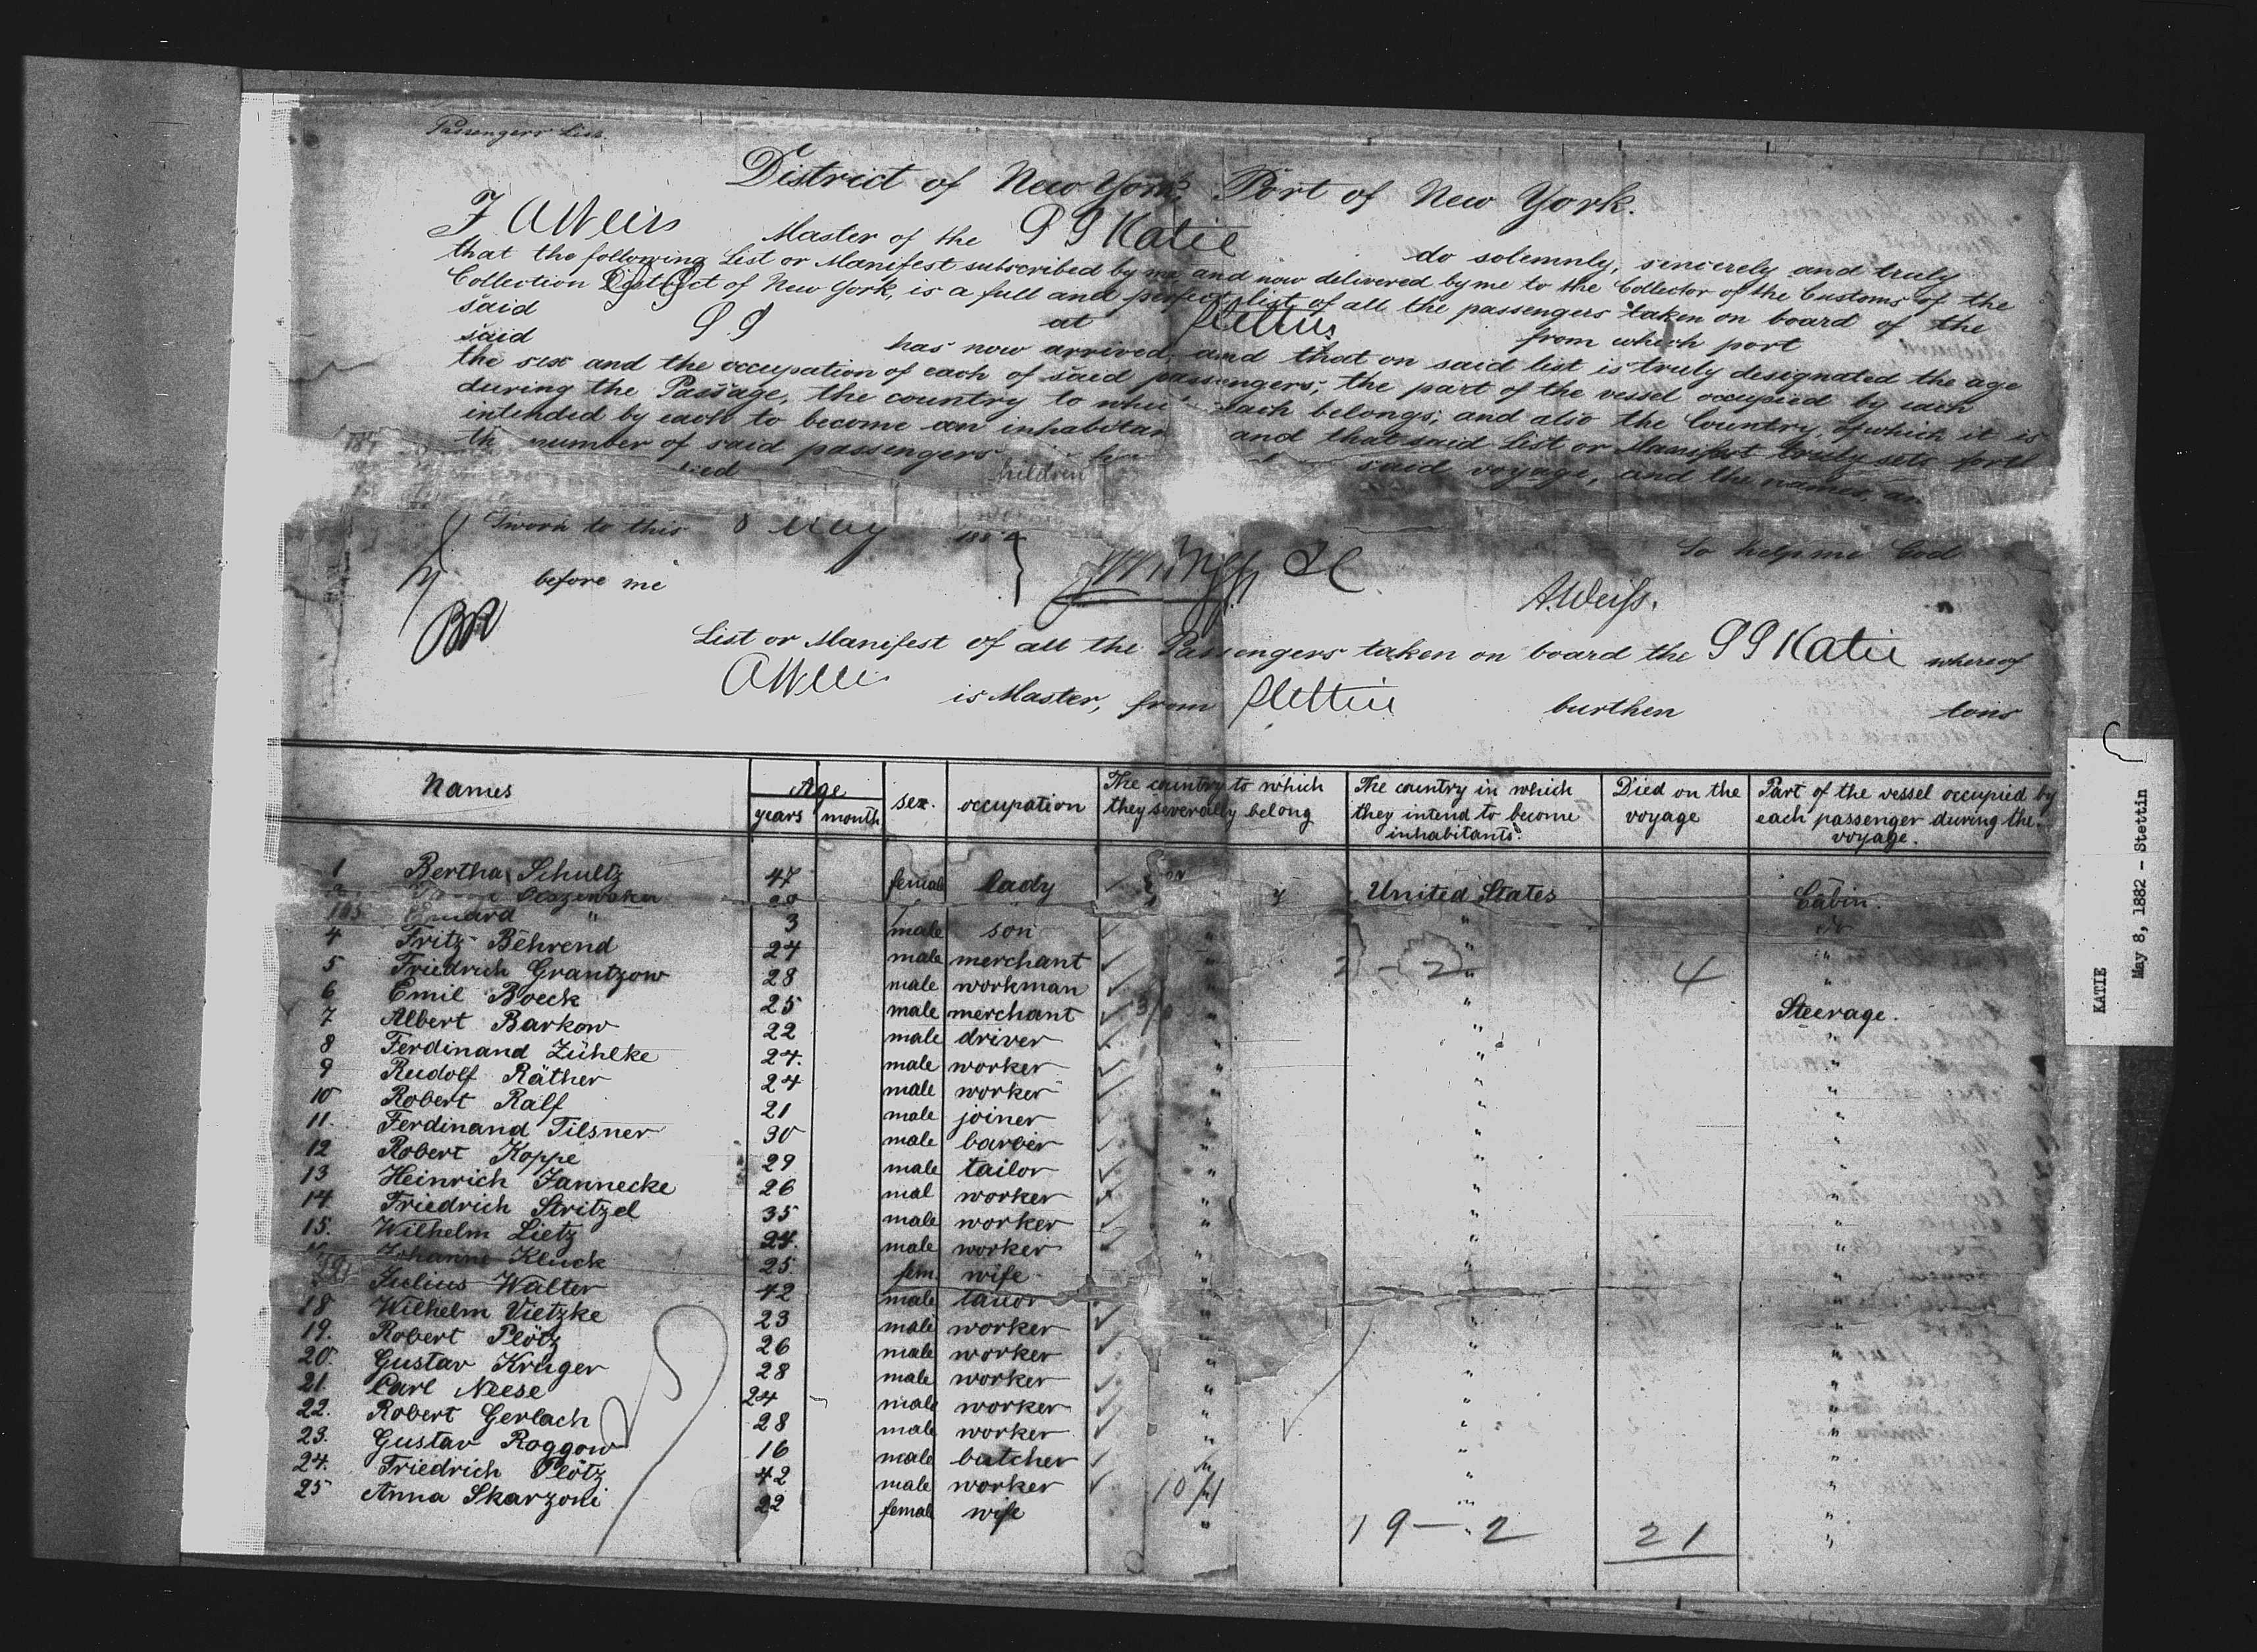 Passengers List.
District of New York. Port of New York.
I A Weiss Master of the SS Katie do solemnly, sincerely and truly
that the following List or Manifest subscribed by me and now delivered by me to the Collector of the Customs of the
Collection District of New York, is a full and perfect list of all the passengers taken on board of the
said SS at Stettin from which port
said has now arrived, and that on said list is truly designated the age
the sex and the occupation of each of said passengers, the part of the vessel occupied by each
during the Passage, the country to each belongs; and also the Country, of which it is
intended by each to become an inhabitan and that said List or Manifest truly sets forth
th number of said passengers said voyage, and the names, an
children
Sworn to this 8 May 188
So help me God
before me
A. Weiß.
List or Manifest of all the Passengers taken on board the SS Katie whereof
A Weiss is Master, from Stettin burthen tons
Names Age years month sex. occupation The country to which they severally belong The country in which they intend to become inhabitants. Died on the voyage Part of the vessel occupied by each passenger during the voyage.
1 Bertha Schultz 47 female lady United States Cabin.
Olszewska
" 3 male son " "
4 Fritz Behrend 24 male merchant " " "
5 Friedrich Grantzow 28 male workman " 2 - 2 " 4 "
6 Emil Boeck 25 male merchant " " Steerage.
7 Albert Barkow 22 male driver " " "
8 Ferdinand Zühlke 24. male worker " " "
9 Rudolf Räther 24 male worker " " "
10 Robert Ralf 21 male joiner " " "
11. Ferdinand Tilsner 30 male barber " " "
12 Robert Koppe 29 male tailor " " "
13 Heinrich Jannecke 26 mal worker " " "
14 Friedrich Stritzel 35 male worker " " "
15. Wilhelm Lietz 24. male worker " " "
Johanne Kluck 25 fem. wife " "
Julius Walter 42 male tailor " " "
18 Wilhelm Vietzke 23 male worker " " "
19. Robert Plötz 26 male worker " " "
20. Gustav Krüger 28 male worker " " "
21. Carl Neese 24 male worker " " "
22. Robert Gerlach 28 male worker " " "
23. Gustav Roggow 16 male butcher " " "
24. Friedrich Plötz 42 male worker " "
25 Anna Skarzoni 22 female wife " " "
19 - 2 21
KATIE
May 8, 1882 - Stettin